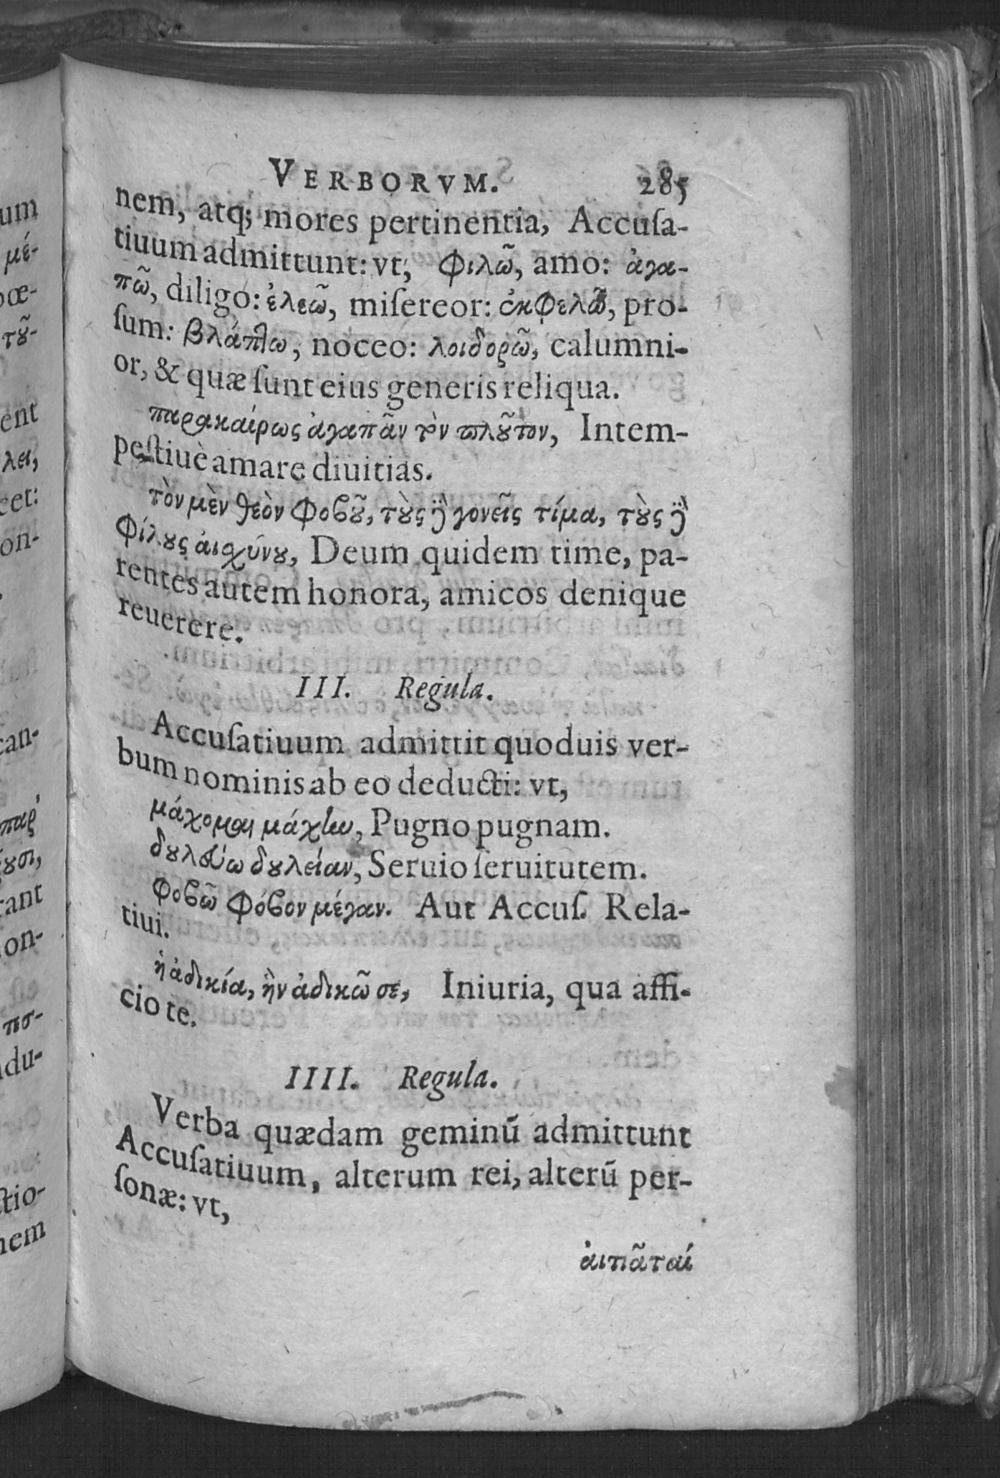 VERBORVM. 285
nem, atq; mores pertinentia, Accusa-
tiuum admittunt: vt, φιλῶ, amo: ἀγα-
πῶ, diligo: ἐλεῶ, misereor: ὀκφελῶ, pro-
sum: βλάπτω, noceo: λοιδορῶ, calumni-
or, & quæ sunt eius generis reliqua.
παρακαίρως ἀγαπᾶν τὸν πλοῦτον, Intem-
pestiuè amare diuitias.
τὸν μὲν θεὸν φοβοῦ, τοὺς δὲ γονεῖς τίμα, τοὺς δὲ
φίλους ἀισχύνου, Deum quidem time, pa-
rentes autem honora, amicos denique
reuerere.
III. Regula.
Accusatiuum admittit quoduis ver-
bum nominis ab eo deducti: vt,
μάχομαι μάχην, Pugno pugnam.
δουλεύω δουλείαν, Seruio seruitutem.
φοβῶ φόβον μέγαν. Aut Accus. Rela-
tiui.
ἡ ἀδικία, ἣν ἀδικῶ σε, Iniuria, qua affi-
cio te.
IIII. Regula.
Verba quædam geminū admittunt
Accusatiuum, alterum rei, alterū per-
sonæ: vt,
ἀιτιᾶταί
um
μέ-
œ-
τοῦ-
ent
λει,
cet:
on-
can-
παρ'
ουσι,
rant
ion-
πσ-
adu-
ctio-
nem